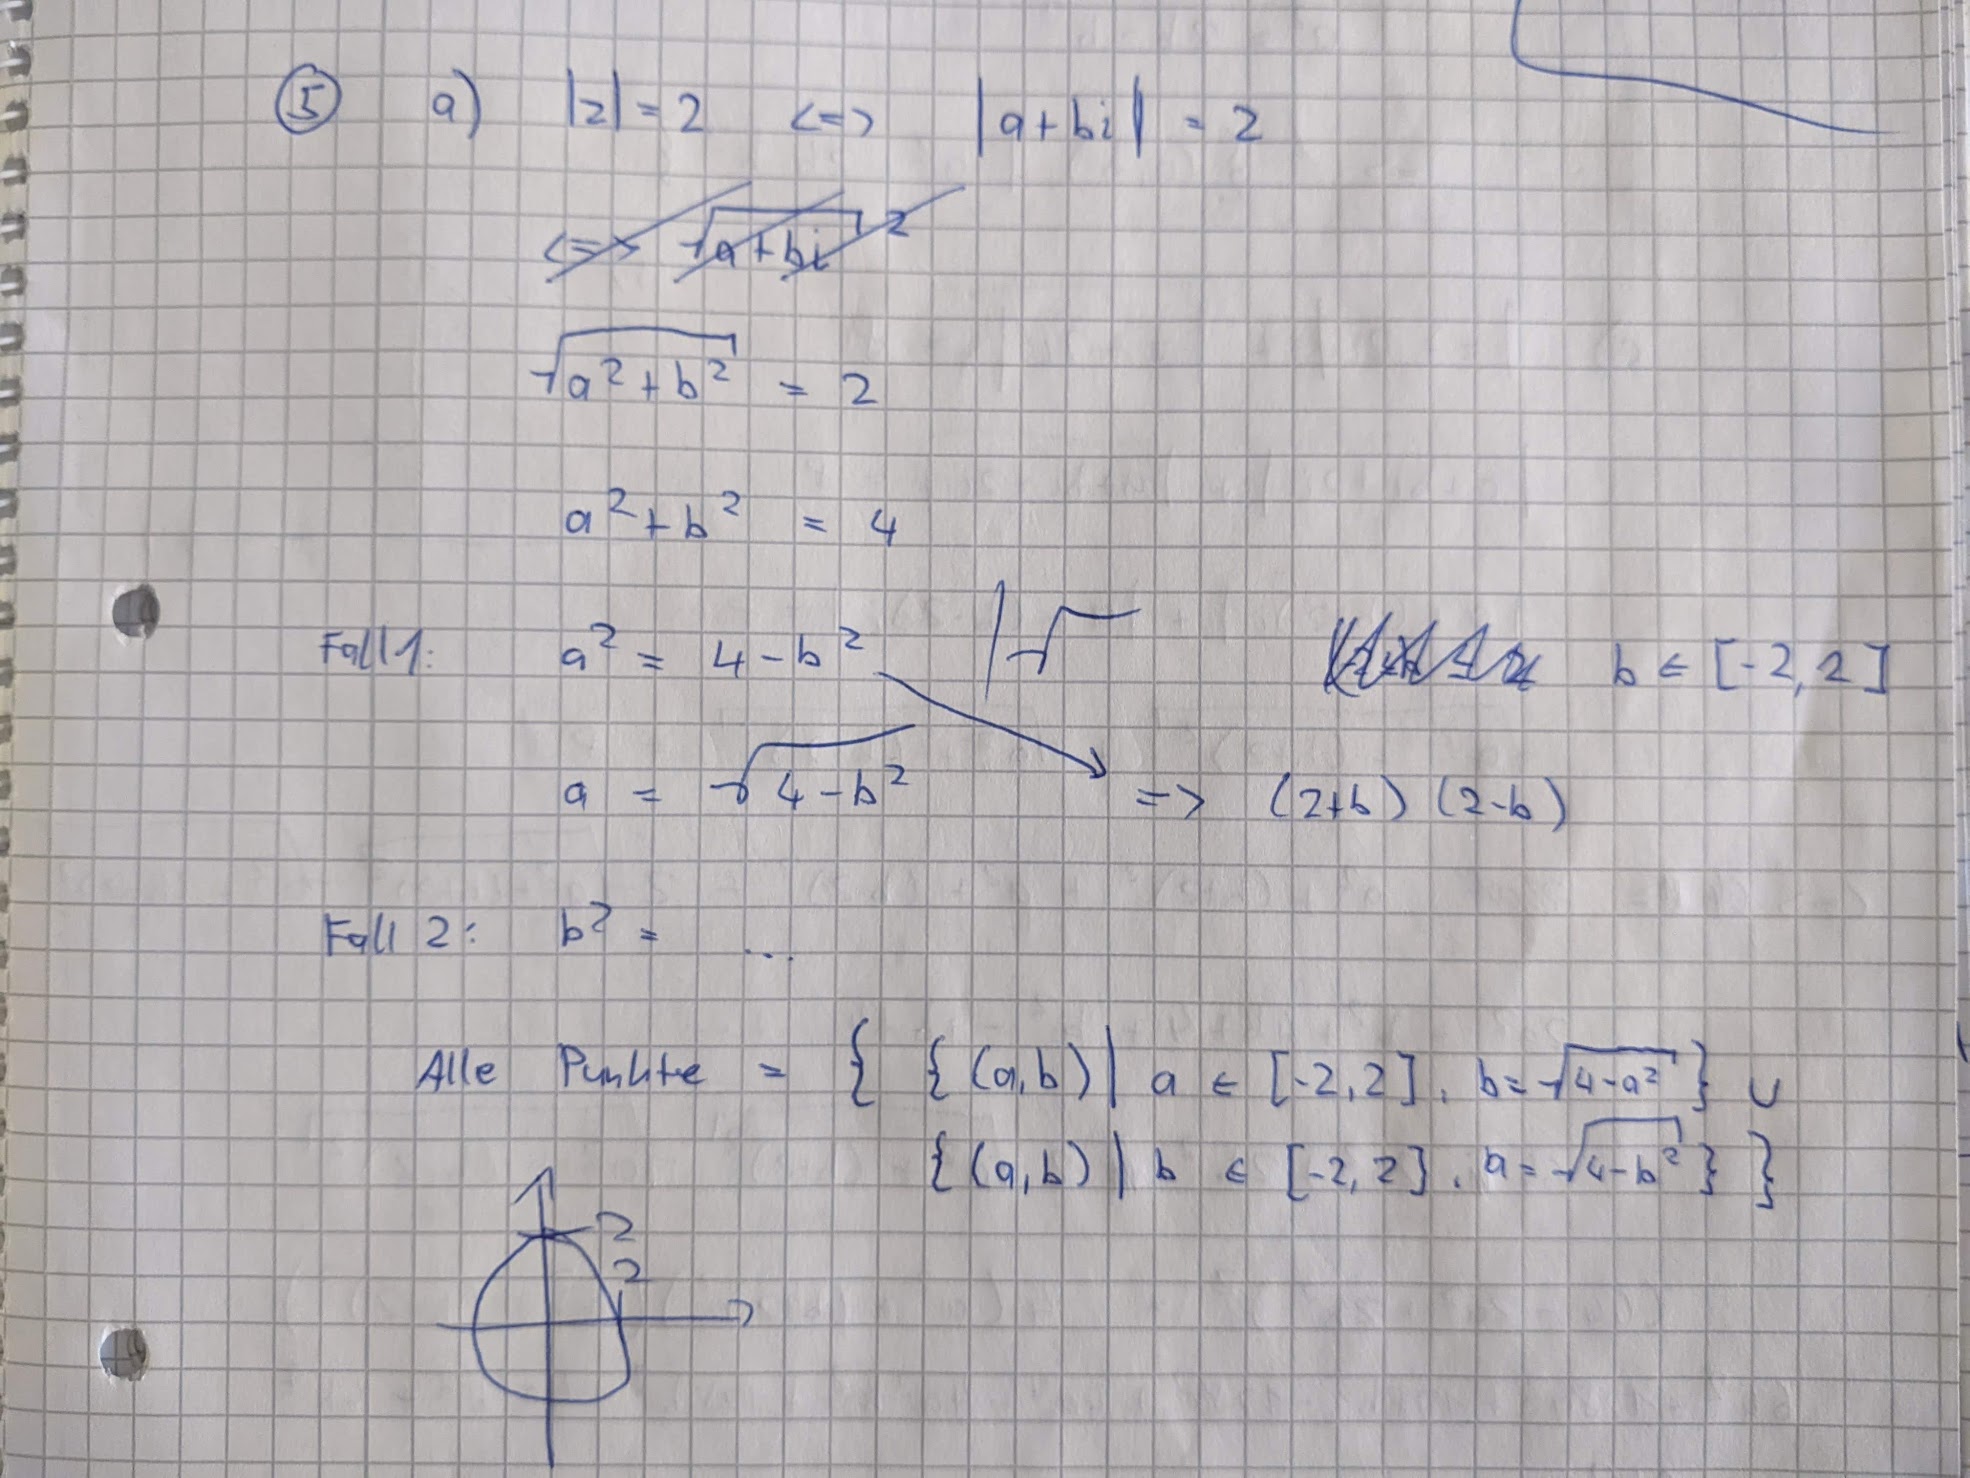 ⑤ a) |z| = 2 <=> |a+bi| = 2
<=> √a+bi 2
√a²+b² = 2
a²+b² = 4
Fall 1: a² = 4-b² |√ b ∈ [-2,2]
a = √4-b² => (2+b) (2-b)
Fall 2: b² = ...
Alle Punkte = { {(a,b)| a ∈ [-2,2], b=√4-a² } ∪
{(a,b)| b ∈ [-2,2], a=√4-b² } }
2
2